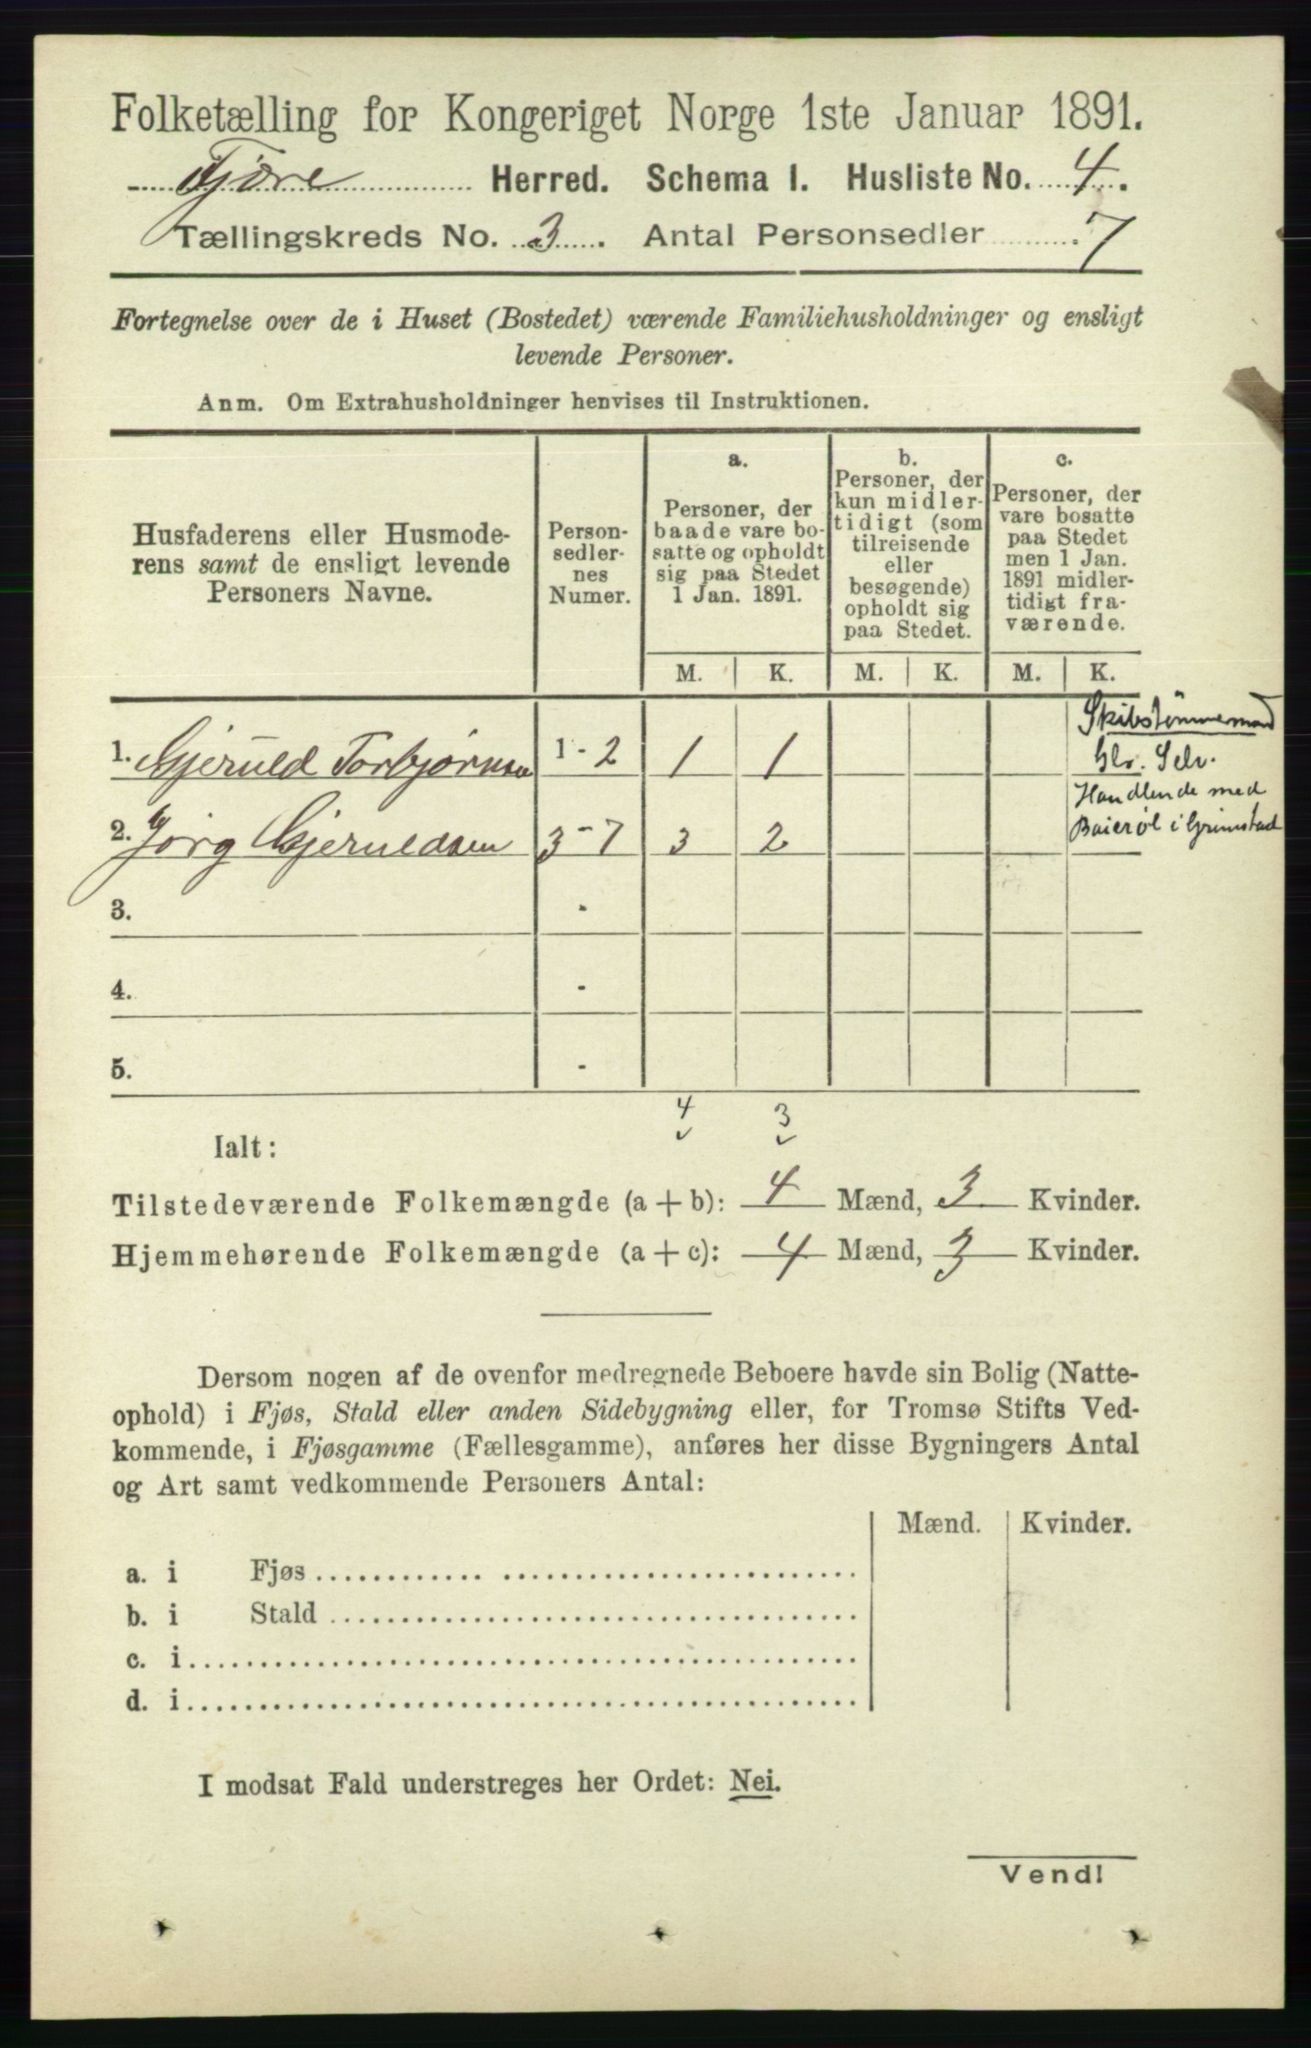 Folketælling for Kongeriget Norge 1ste Januar 1891.
Fjære Herred. Schema I. Husliste No. 4.
Tællingskreds No. 3. Antal Personsedler 7
Fortegnelse over de i Huset (Bostedet) værende Familiehusholdninger og ensligt
levende Personer.
Anm. Om Extrahusholdninger henvises til Instruktionen.
Husfaderens eller Husmode-
rens samt de ensligt levende
Personers Navne.
Person-
sedler-
nes
Numer.
a.
Personer, der
baade vare bo-
satte og opholdt
sig paa Stedet
1 Jan. 1891.
b.
Personer, der
kun midler-
tidigt (som
tilreisende
eller
besøgende)
opholdt sig
paa Stedet.
c.
Personer, der
vare bosatte
paa Stedet
men 1 Jan.
1891 midler-
tidigt fra-
værende.
M. K. M. K. M. K.
Skibstømmermand
Slv. Selv.
1. Gjeruld Torbjørnsen 1 - 2 1 1
Handlende med
Baierøl i Grimstad
2. Jørg Gjeruldsen 3 - 7 3 2
3. -
4. -
5. -
4 3
Ialt:
Tilstedeværende Folkemængde (a + b): 4 Mænd, 3 Kvinder.
Hjemmehørende Folkemængde (a + c): 4 Mænd, 3 Kvinder.
Dersom nogen af de ovenfor medregnede Beboere havde sin Bolig (Natte-
ophold) i Fjøs, Stald eller anden Sidebygning eller, for Tromsø Stifts Ved-
kommende, i Fjøsgamme (Fællesgamme), anføres her disse Bygningers Antal
og Art samt vedkommende Personers Antal:
Mænd. Kvinder.
a. i Fjøs
b. i Stald
c. i
d. i
I modsat Fald understreges her Ordet: Nei.
Vend!